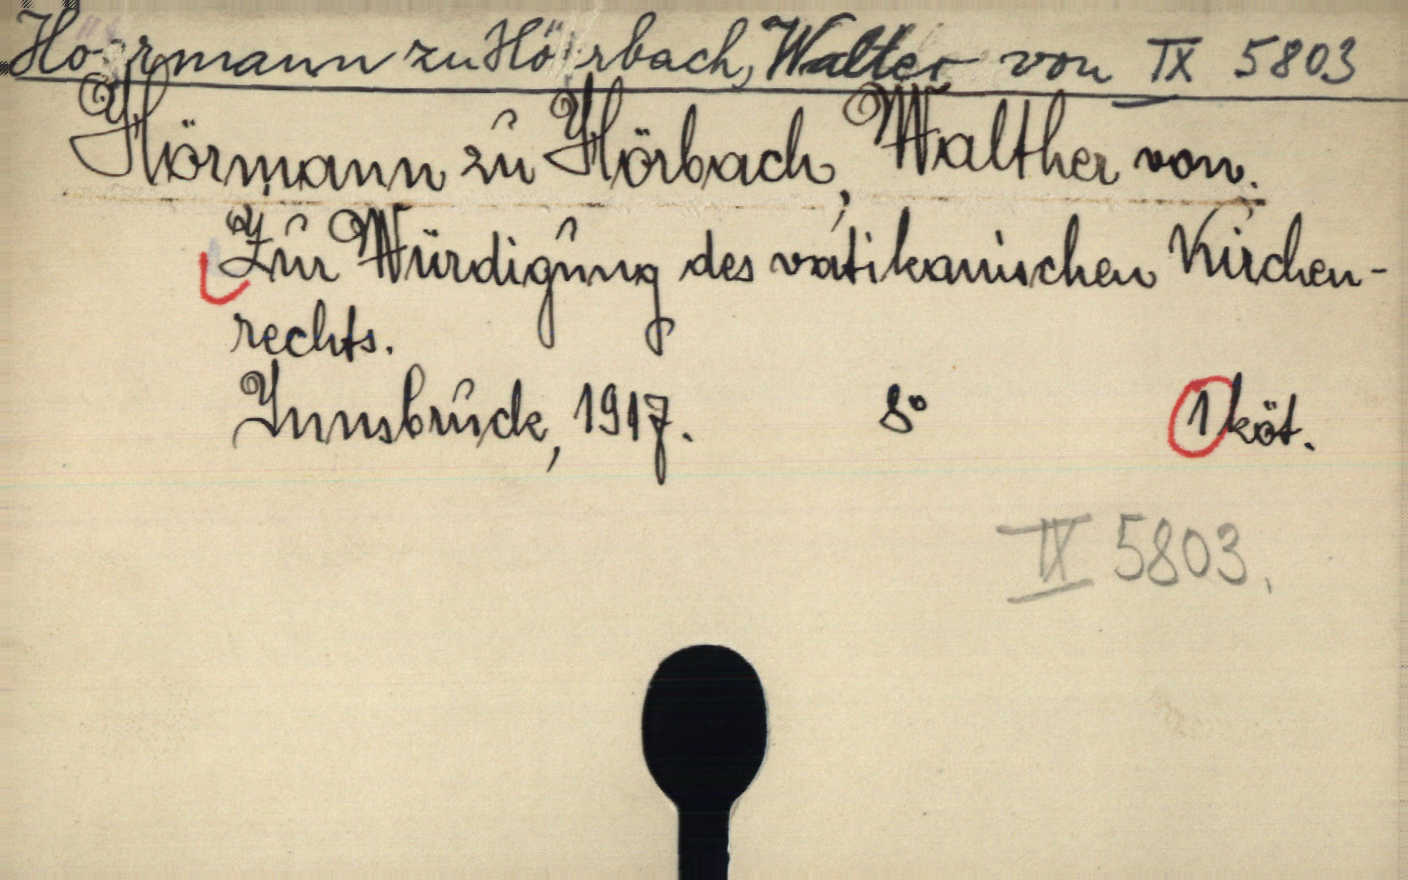 Hörmann zu Hörbach, Walter von IX 5803
Hörmann zu Hörbach, Walther von.
Zur Würdigung des vatikanischen Kirchen-
rechts.
Innsbruck, 1917. 8° 1 köt.
IX 5803.